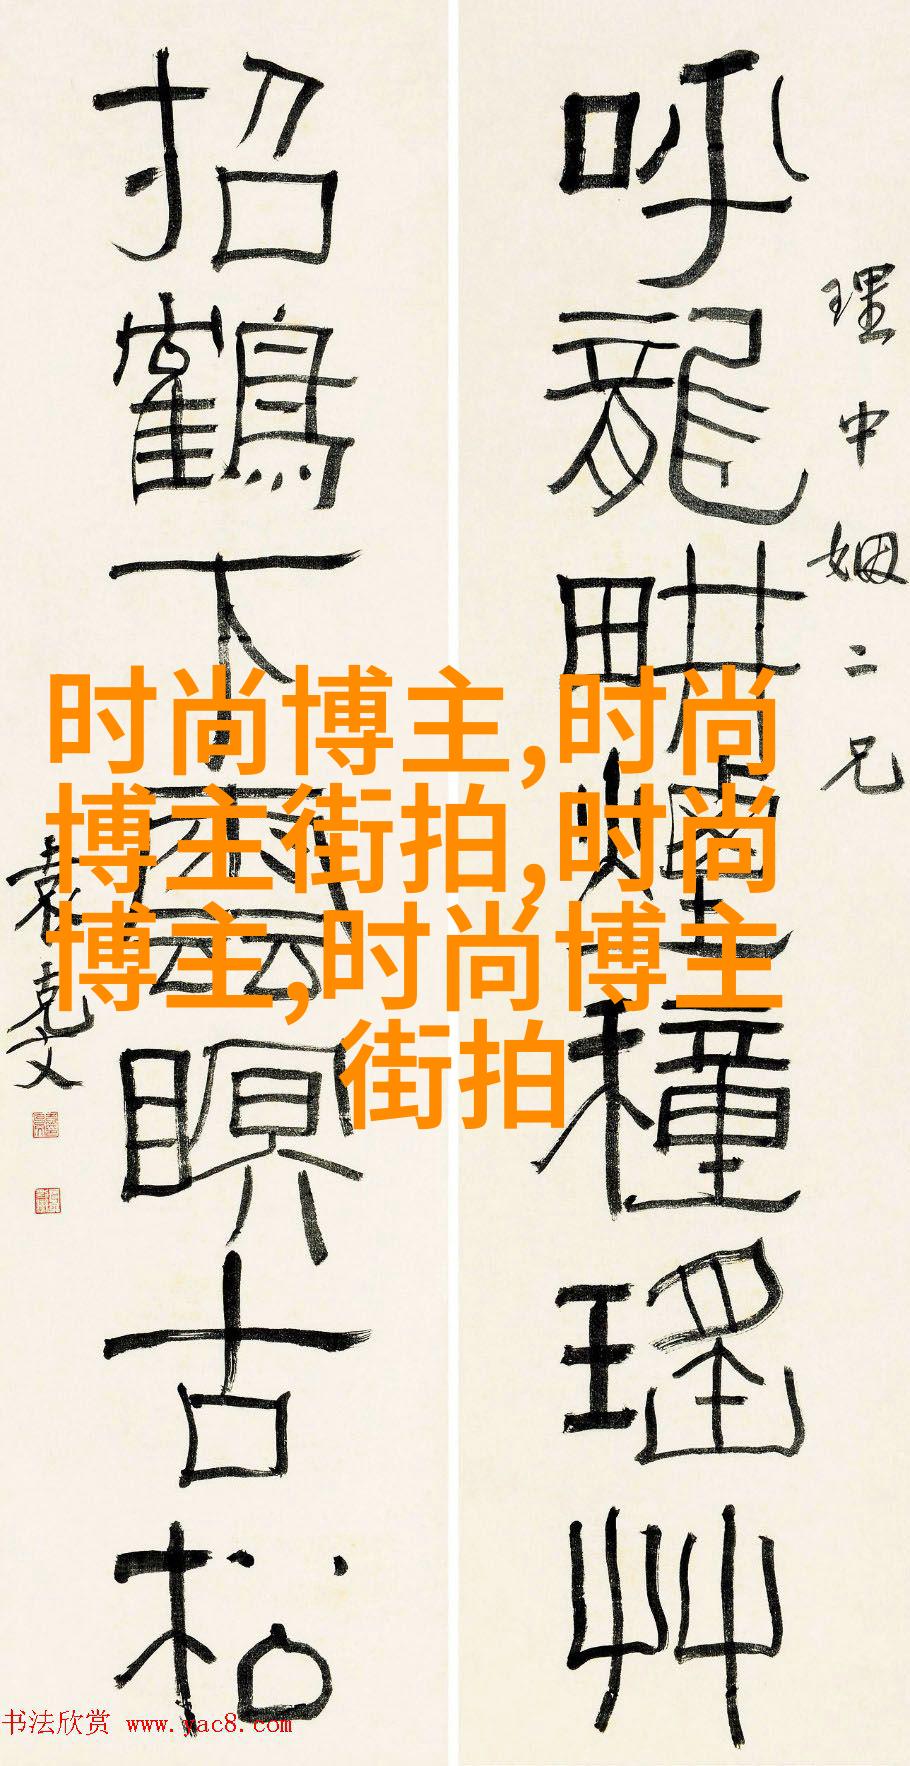 理中姻二兄
呼龍畊煙穜瑤艸
招鶴下雲瞑古松
袁克文
时尚博主,时尚
博主街拍,时尚
博主,时尚博主
街拍
书法欣赏 www.yac8.com